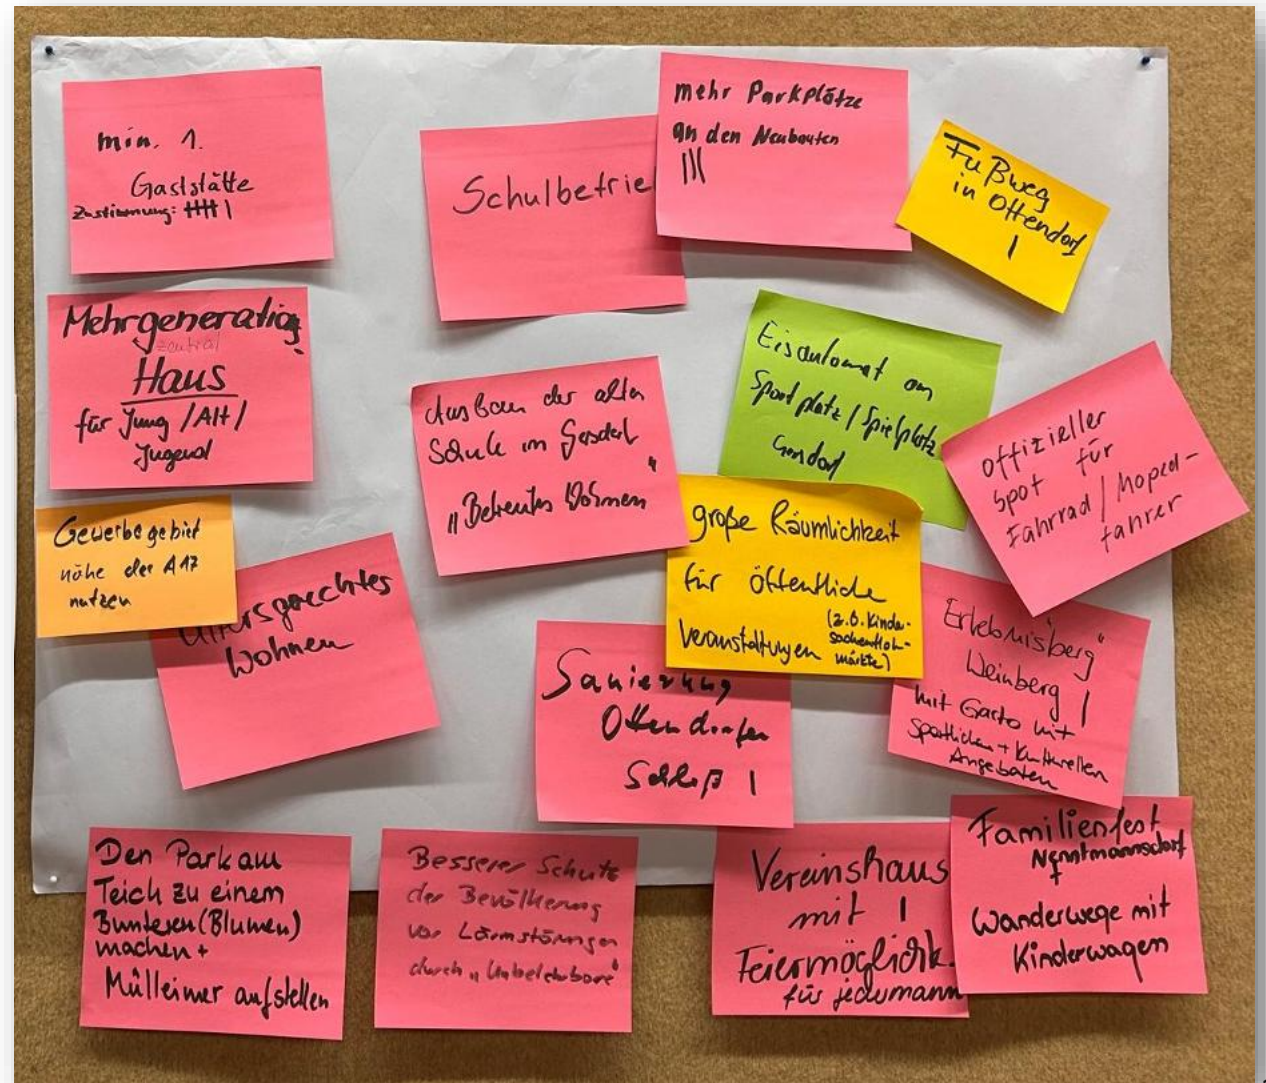 min. 1.
Gaststätte
Zustimmung: |||| |
Schulbetrie
mehr Parkplätze
an den Neubauten
|||
Fußweg
in Ottendorf
|
Mehrgeneration
zentral
Haus
für Jung / Alt /
Jugend
Ausbau der alten
Schule im
"Betreutes Wohnen"
Eisautomat am
Sportplatz / Spielplatz
Offizieller
Spot für
Fahrrad / Moped-
fahrer
Gewerbegebiet
nähe der A17
nutzen
Altersgerechtes
Wohnen
große Räumlichkeit
für öffentliche
Veranstaltungen
(z.B. Kinder-
sachenfloh-
märkte)
Sanierung
Ottendorfer
Schloß |
Erlebnisberg"
Weinberg |
mit Gastro mit
Sportlichen + Kulturellen
Angeboten
Den Park am
Teich zu einem
Bunteren (Blumen)
machen +
Mülleimer aufstellen
Besserer Schutz
der Bevölkerung
vor Lärmstörungen
durch "Unbelehrbare"
Vereinshaus
mit |
Feiermöglichk.
für jedermann
Familienfest
Nenntmannsdorf
+
Wanderwege mit
Kinderwagen